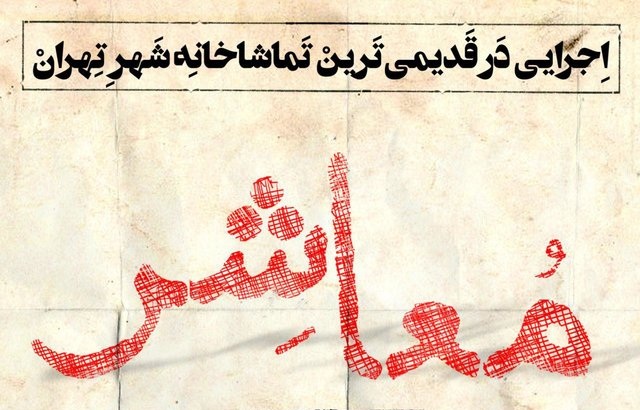 اِجرایی دَر قَدیمی تَرینْ تَماشاخانِه شَهرِ تِهرانْ
مُعاشِر